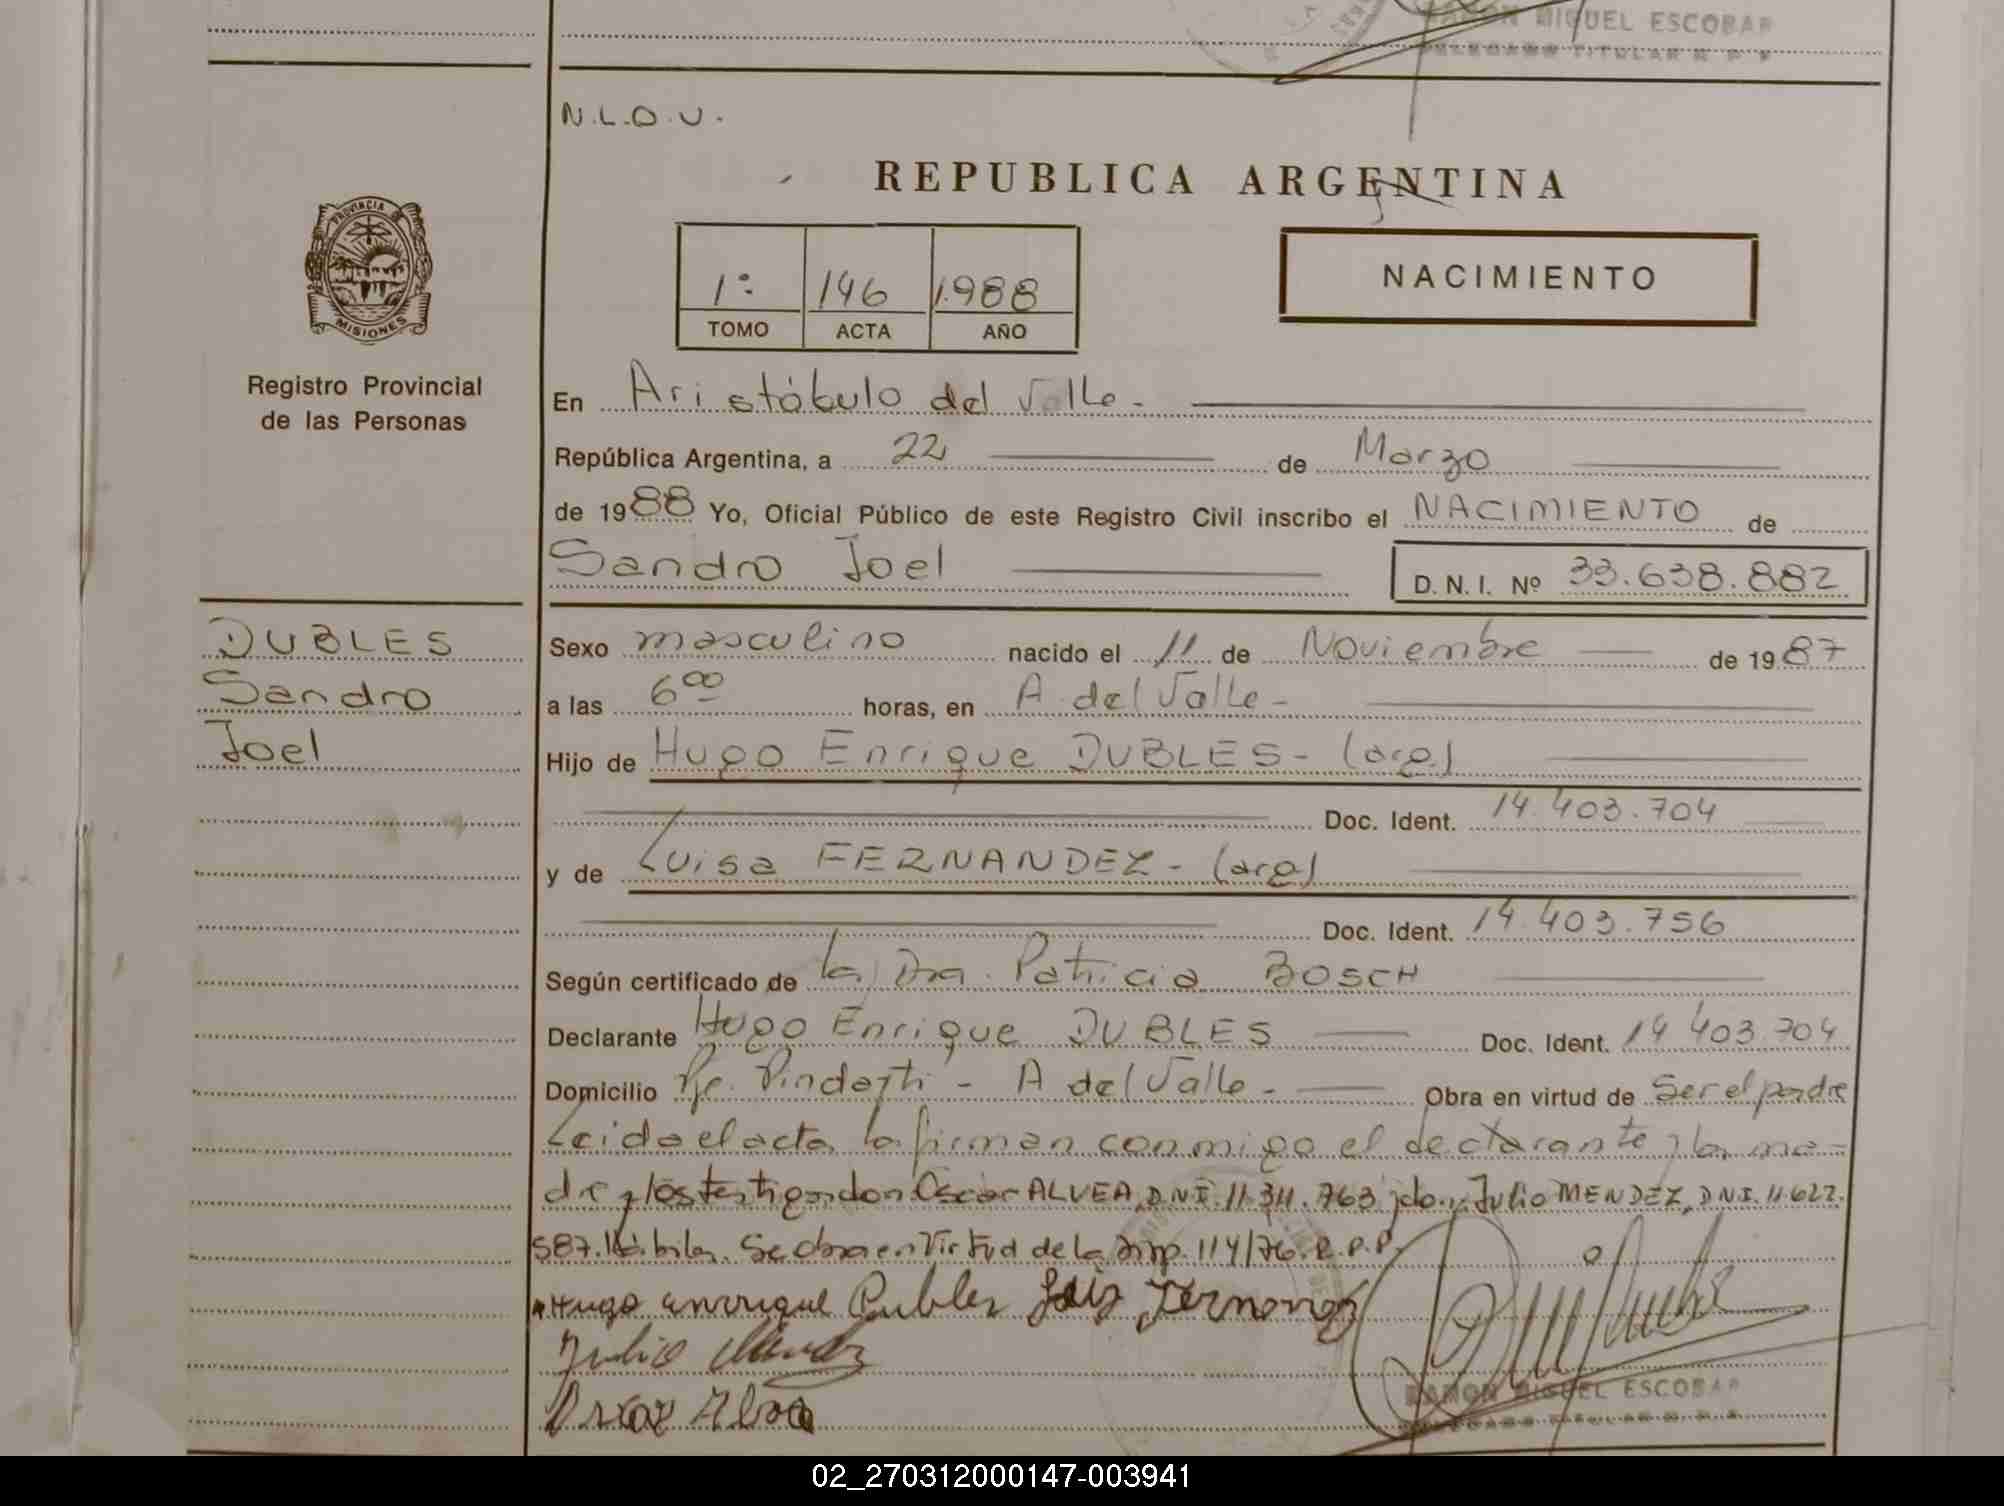 RAMON MIGUEL ESCOBAR
DELEGADO TITULAR R P P
N.L.O.U.
REPUBLICA ARGENTINA
PROVINCIA DE
MISIONES
1º 146 1.988
TOMO ACTA AÑO
NACIMIENTO
Registro Provincial
de las Personas
En Aristóbulo del Valle -
República Argentina, a 22 de Marzo
de 1988 Yo, Oficial Público de este Registro Civil inscribo el NACIMIENTO de
Sandro Joel D. N. I. Nº 33.638.882
DUBLES
Sandro
Joel
Sexo masculino nacido el 11 de Noviembre de 1987
a las 6 00 horas, en A. del Valle -
Hijo de Hugo Enrique DUBLES - (arg)
Doc. Ident. 14.403.704
y de Luisa FERNANDEZ - (arg)
Doc. Ident. 14.403.756
Según certificado de la Dra. Patricia BOSCH
Declarante Hugo Enrique DUBLES Doc. Ident. 14.403.704
Domicilio Pje. Pindaytí - A del Valle - Obra en virtud de Ser el padre
Leida el acta la firman conmigo el declarante, la ma=
dre y los testigos don Oscar ALVEA, D.N.I. 11.311.763 y do. Julio MENDEZ, D.N.I. 11.622.
587. Hábiles. Se obra en Virtud de la Disp. 114/76. R.P.P.
Hugo enrrique Dubles
Julio Mendez
RAMON MIGUEL ESCOBAR
DELEGADO TITULAR R. P. P.
02_270312000147-003941